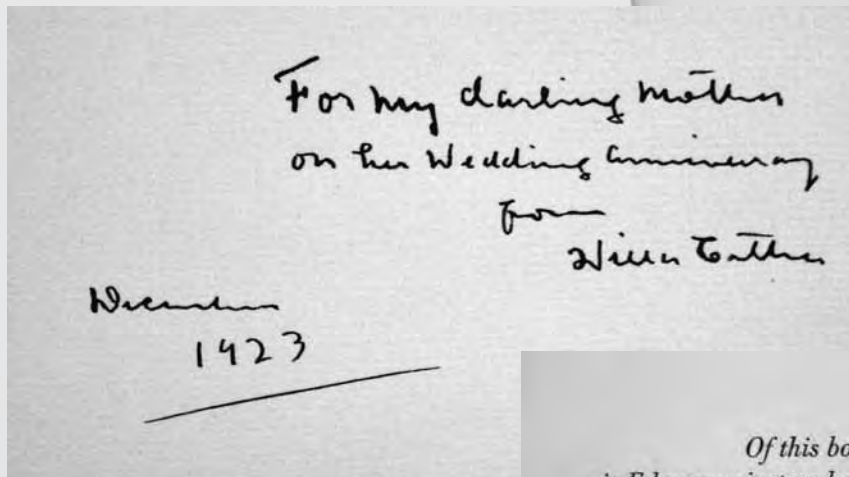 For my darling Mother
on her Wedding Anniversary
from
Willa Cather
December
1923
Of this bo